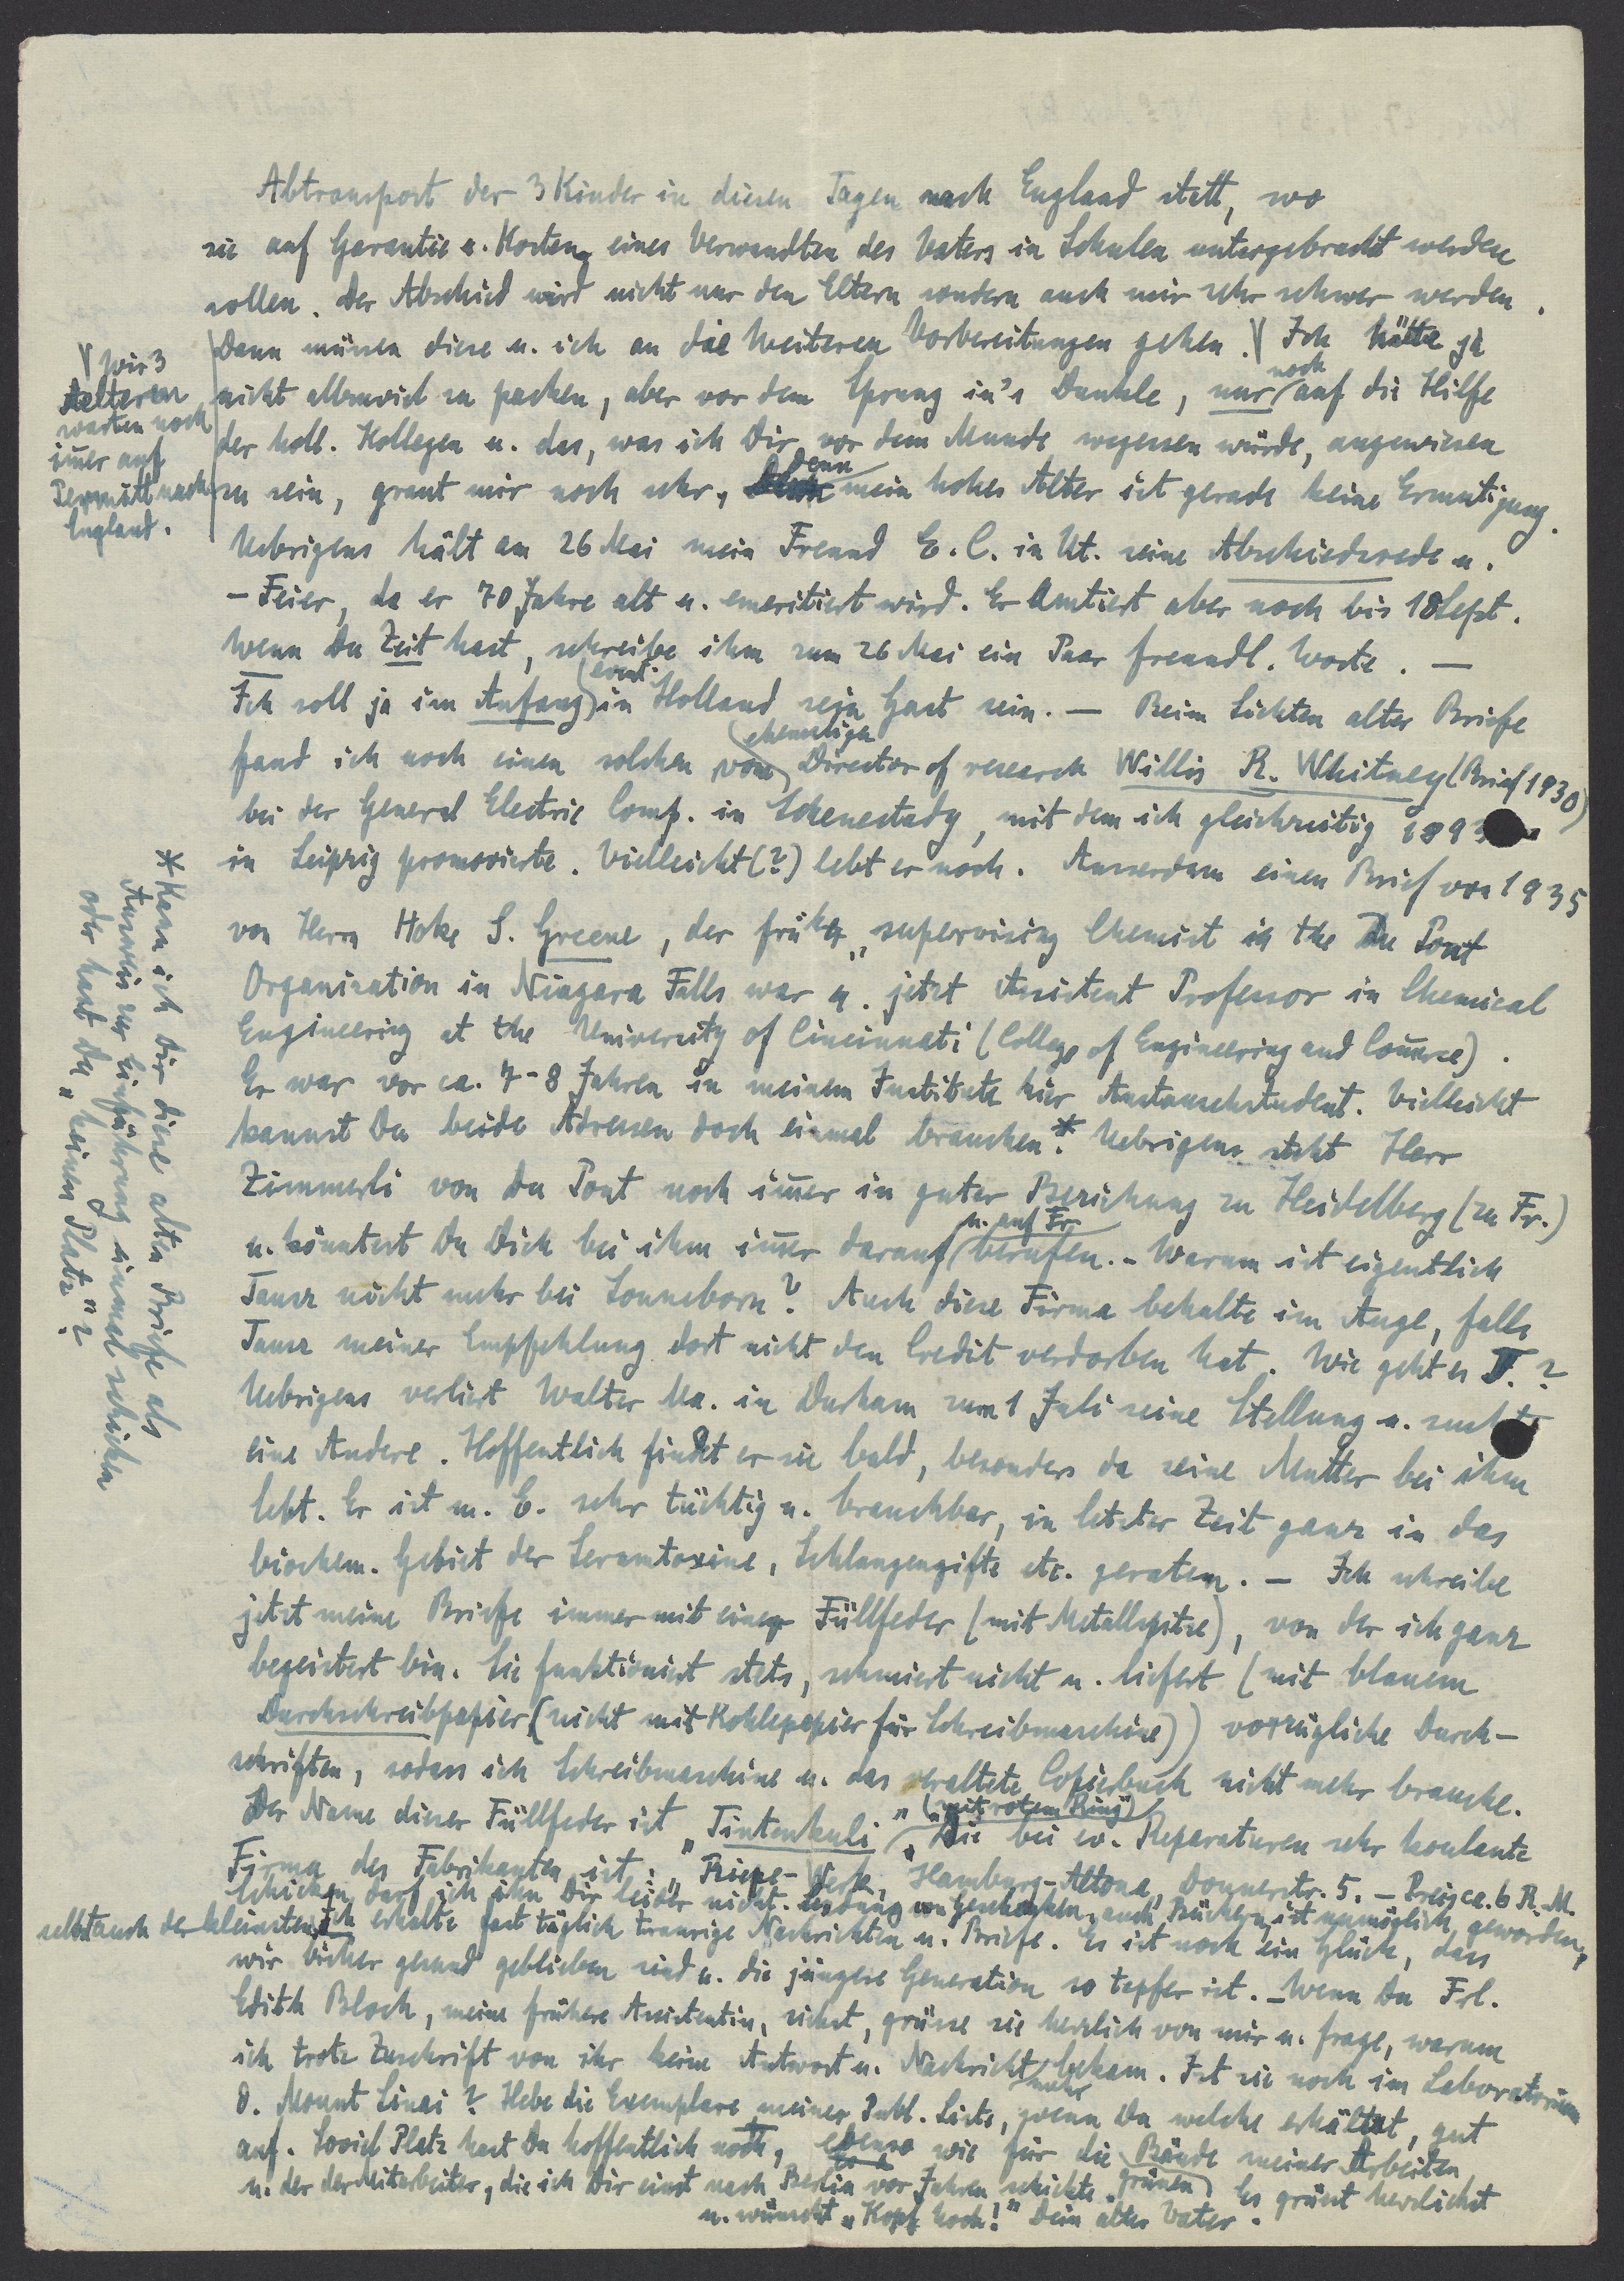 Abtransport der 3 Kinder in diesen Tagen nach England statt, wo
sie auf Garantie u. Kosten eines Verwandten des Vaters in Schulen untergebracht werden
sollen. Der Abschied wird nicht nur den Eltern sondern auch mir sehr schwer werden.
Dann müssen diese u. ich an die Weiteren Vorbereitungen gehen. Ich hätte ja
wir 3
Aelteren
warten noch
im̅er auf
Permitt nach
England.
noch
nicht allzuviel zu packen, aber vor dem Sprung in's Dunkle, nur auf die Hilfe
der holl. Kollegen u. das, was ich Dir vor dem Munde wegessen würde, angewiesen
denn
zu sein, graut mir noch sehr, mein hohes Alter ist gerade keine Ermutigung.
Uebrigens hält am 26 Mai mein Freund E. C. in Ut. seine Abschiedsrede u.
- Feier, da er 70 Jahre alt u. emeritiert wird. Er Amtiert aber noch bis 18 Sept.
Wenn Du Zeit hast, schreibe ihm zum 26 Mai ein Paar freundl. Worte. —
event.
Ich soll ja im Anfang in Holland sein Gast sein. — Beim Sichten alter Briefe
ehemaligen
fand ich noch einen solchen vom Director of research Willis R. Whitney (Brief 1930)
bei der General Electric Comp. in Schenectady, mit dem ich gleichzeitig 1893
in Leipzig promovierte. Vielleicht (?) lebt er noch. Ausserdem einen Brief von 1935
von Herrn Hoke S. Greene, der früher „supervising Chemist in the Du Pont
Organisation in Niagara Falls war u. jetzt Assistent Professor in Chemical
Engineering at the University of Cincinnati (College of Engineering and Com̅erce).
Er war vor ca. 7-8 Jahren in meinem Institute hier Austauschstudent. Vielleicht
kannst Du beide Adressen doch einmal brauchen.* Uebrigens steht Herr
* Kann ich Dir diese alten Briefe als
Ausweis zur Einführung einmal schicken
oder hast Du „keinen Platz"?
Zimmerli von Du Pont noch im̅er in guter Beziehung zu Heidelberg (zu Fr.)
u. auf Fr.
u. könntest Du Dich bei ihm im̅er darauf berufen. - Warum ist eigentlich
Tausz nicht mehr bei Sonneborn? Auch diese Firma behalte im Auge, falls
Tausz meiner Empfehlung dort nicht den Credit verdorben hat. Wie geht es T.?
Uebrigens verliert Walter Ma. in Durham zum 1 Juli seine Stellung u. sucht
eine Andere. Hoffentlich findet er sie bald, besonders da seine Mutter bei ihm
lebt. Er ist m. E. sehr tüchtig u. brauchbar, in letzter Zeit ganz in das
biochem. Gebiet der Serumtoxine, Schlangengifte etc. geraten. — Ich schreibe
jetzt meine Briefe immer mit einer Füllfeder (mit Metallspitze), von der ich ganz
begeistert bin. Sie funktioniert stets, schmiert nicht u. liefert (mit blauem
Durchschreibpapier (nicht mit Kohlepapier für Schreibmaschine)) vorzügliche Durch-
schriften, sodass ich Schreibmaschine u. das veraltete Copierbuch nicht mehr brauche.
(„mit rotem Ring")
Der Name dieser Füllfeder ist „Tintenkuli". Die bei ev. Reparaturen sehr koulante
Firma des Fabrikanten ist: „Riepe-Werk, Hamburg-Altona, Donnerstr. 5. - Preis ca. 6 R. M.
Schicken darf ich ihn Dir leider nicht. Sendung von Geschenken, auch Büchern, ist unmöglich geworden,
selbst auch der kleinsten. Ich erhalte fast täglich traurige Nachrichten u. Briefe. Es ist noch ein Glück, dass
wir bisher gesund geblieben sind u. die jüngere Generation so tapfer ist. - Wenn Du Frl.
Edith Bloch, meine frühere Assistentin, siehst, grüsse sie herzlich von mir u. frage, warum
ich trotz Zuschrift von ihr keine Antwort u. Nachricht bekam. Ist sie noch im Laboratorium
mehr
d. Mount Sinai? Hebe die Exemplare meiner Publ. Liste, wenn Du welche erhältst, gut
auf. Soviel Platz hast Du hoffentlich noch, ebenso wie für die Bände meiner Arbeiten
grünen
u. der der Mitarbeiter, die ich Dir einst nach Berlin vor Jahren schickte. Es grüsst herzlichst
u. wünscht „Kopf hoch!" Dein alter Vater.